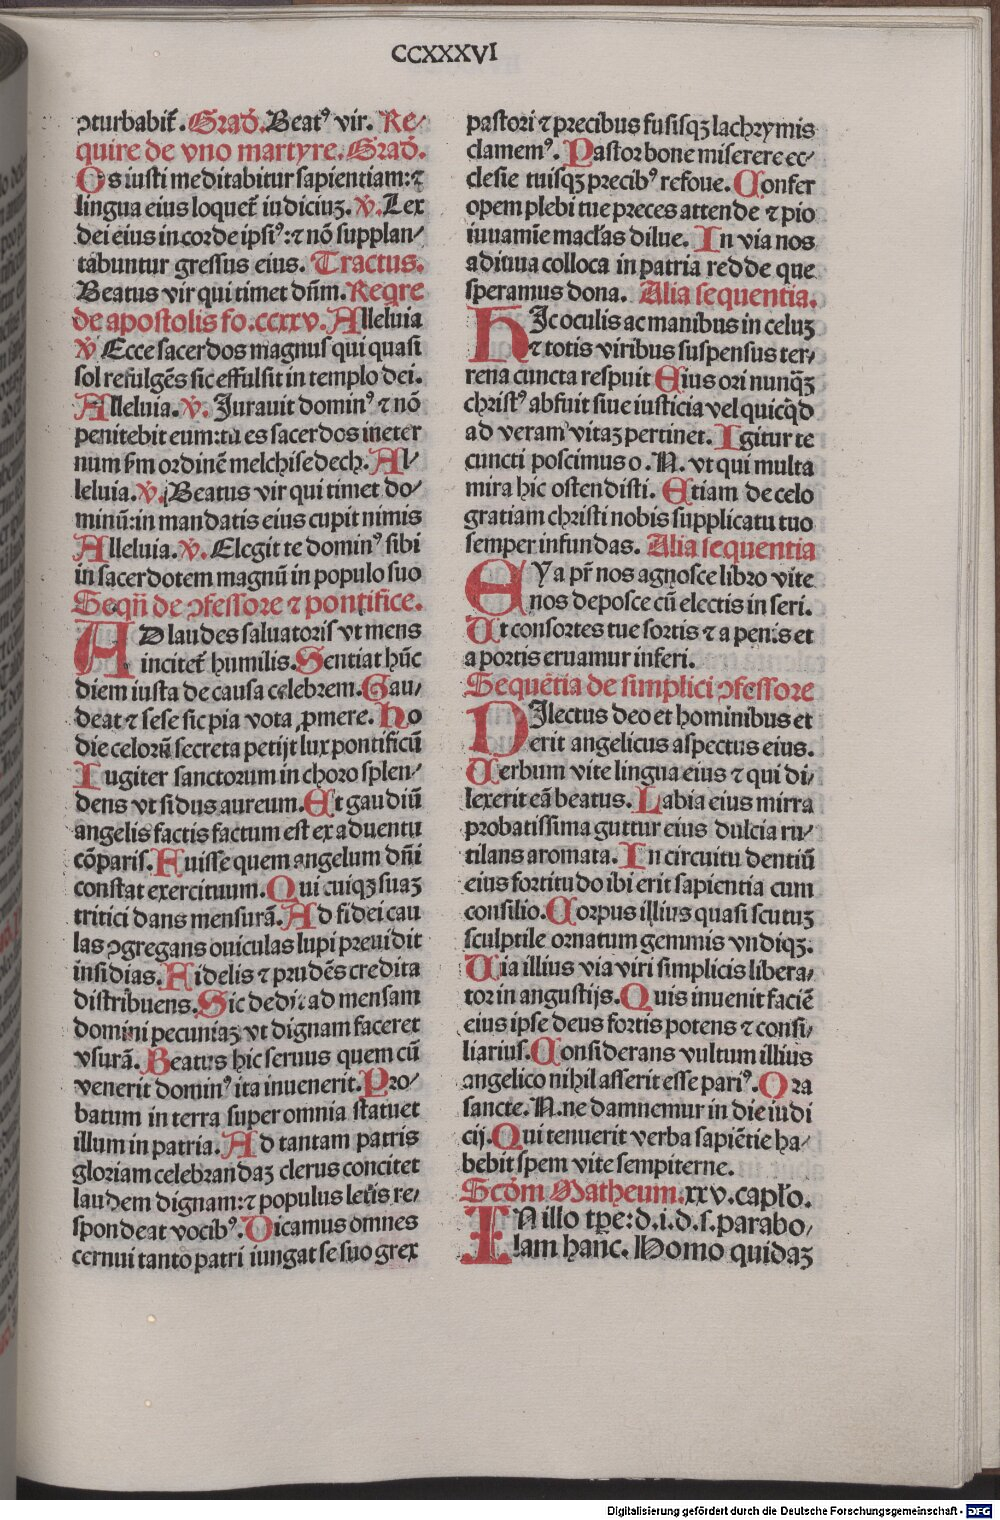 CCXXXVI
ↄturbabit᷑. Grad᷑. Beatꝰ vir. Re⸗
quire de vno martyre. Grad᷑.
Os iusti meditabitur sapientiam: ⁊
lingua eius loquet᷑ iudiciuꝫ. ℣. Lex
dei eius in corde ipsiꝰ: ⁊ nō supplan⸗
tabuntur gressus eius. Tractus.
Beatus vir qui timet dn̄m. Reqre
de apostolis fo. ccxxv. Alleluia
℣ Ecce sacerdos magnus qui quasi
sol refulgēs sic effulsit in templo dei.
Alleluia. ℣. Jurauit dominꝰ ⁊ nō
penitebit eum: tu es sacerdos in eter
num ẜm ordinē melchisedech. Al⸗
leluia. ℣. Beatus vir qui timet do⸗
minū: in mandatis eius cupit nimis
Alleluia. ℣. Elegit te dominꝰ sibi
in sacerdotem magnū in populo suo
Seqn̄ de ↄfessore ⁊ pontifice.
AD laudes saluatoris vt mens
incitet᷑ humilis. Sentiat hūc
diem iusta de causa celebrem. Gau⸗
deat ⁊ sese sic pia vota ꝓmere. Ho
die celorū secreta petijt lux pontificū
Iugiter sanctorum in choro splen⸗
dens vt sidus aureum. Et gaudiū
angelis factis factum est ex aduentu
cōparis. Fuisse quem angelum dn̄i
constat exercituum. Qui cuiqꝫ suaꝫ
tritici dans mensurā. Ad fidei cau
las ↄgregans ouiculas lupi preuidit
insidias. Fidelis ⁊ prudēs credita
distribuens. Sic dedit ad mensam
domini pecuniaꝫ vt dignam faceret
vsurā. Beatus hic seruus quem cū
venerit dominꝰ ita inuenerit. Pro⸗
batum in terra super omnia statuet
illum in patria. Ad tantam patris
gloriam celebrandaꝫ clerus concitet
laudem dignam: ⁊ populus letus re⸗
spondeat vocibꝰ. Dicamus omnes
cernui tanto patri iungat se suo grex
pastori ⁊ precibus fusisqꝫ lachrymis
clamemꝰ. Pastor bone miserere ec⸗
clesie tuisqꝫ precibꝰ refoue. Confer
opem plebi tue preces attende ⁊ pio
iuuamīe macl̄as dilue. In via nos
aditiua colloca in patria redde que
speramus dona. Alia sequentia.
HIc oculis ac manibus in celuꝫ
⁊ totis viribus suspensus ter⸗
rena cuncta respuit Eius ori nunqꝫ̄
christꝰ abfuit siue iusticia vel quicqd
ad veram vitaꝫ pertinet. Igitur te
cuncti poscimus o. N. vt qui multa
mira hic ostendisti. Etiam de celo
gratiam christi nobis supplicatu tuo
semper infundas. Alia sequentia
EYa pr̄ nos agnosce libro vite
nos deposce cū electis inseri.
Ut consortes tue sortis ⁊ a penis et
a portis eruamur inferi.
Sequētia de simplici ↄfessore
DIlectus deo et hominibus et
erit angelicus aspectus eius.
Uerbum vite lingua eius ⁊ qui di⸗
lexerit eā beatus. Labia eius mirra
probatissima guttur eius dulcia ru⸗
tilans aromata. In circuitu dentiū
eius fortitudo ibi erit sapientia cum
consilio. Corpus illius quasi scutuꝫ
sculptile ornatum gemmis vndiqꝫ.
Uia illius via viri simplicis libera⸗
tor in angustijs. Quis inuenit faciē
eius ipse deus fortis potens ⁊ consi⸗
liarius. Considerans vultum illius
angelico nihil asserit esse pariꝰ. Ora
sancte. N. ne damnemur in die iudi
cij. Qui tenuerit verba sapiētie ha⸗
bebit spem vite sempiterne.
Scd᷑m Matheum. xxv. capl̄o.
IN illo tꝑe: d. i. d. s. parabo⸗
lam hanc. Homo quidaꝫ
Digitalisierung gefördert durch die Deutsche Forschungsgemeinschaft - DFG